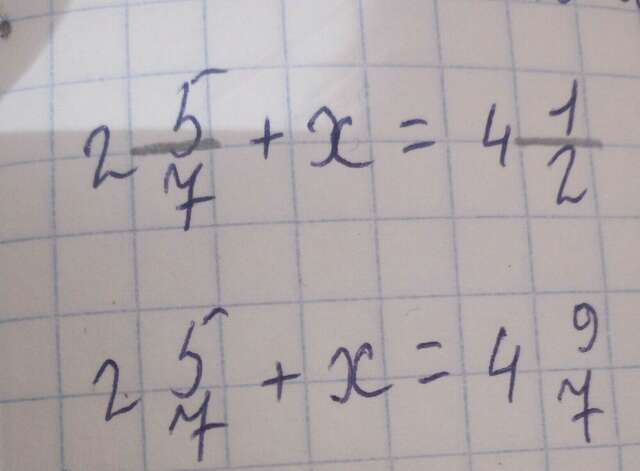 2 5/7 + x = 4 1/2
2 5/7 + x = 4 9/7